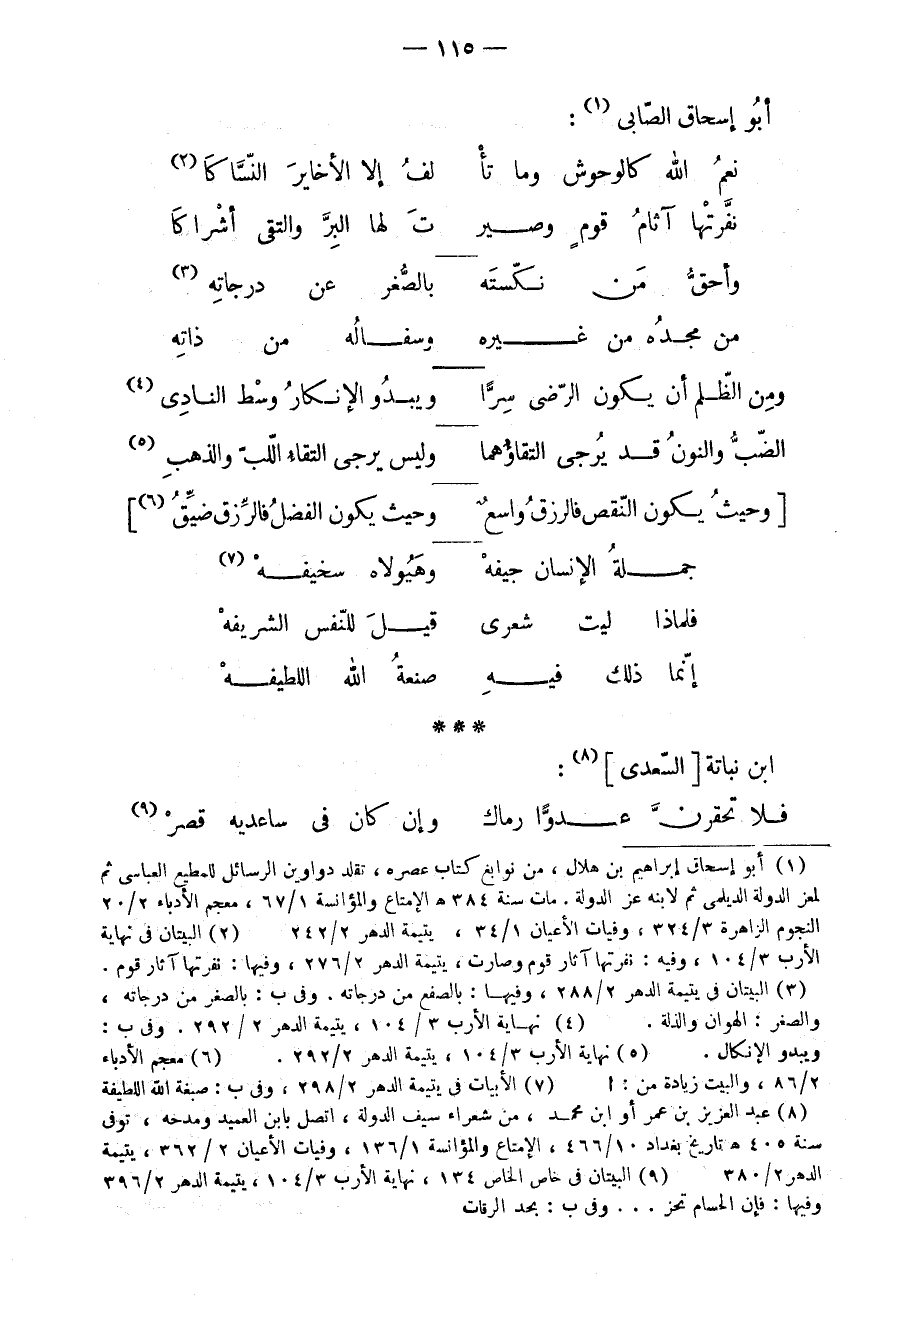 — ١١٥ —
أبُو إسحاق الصّابى (١) :
نعمُ الله كالوحوش وما تأْ لفُ إلا الأخايرَ النّسَّاكَا (٢)
نفَّرتْها آثامُ قومٍ وصير تَ لها البِرَّ والتقى أشْراكَا
وأحقُّ مَن نكّستَه بالصُّغر عن درجاتِهِ (٣)
من مجدُه من غيره وسفالُه من ذاتِهِ
ومِن الظّلم أن يكون الرّضى سِرًّا ويبدُو الإنكارُ وسْط النادِى (٤)
الضّبُّ والنونُ قد يُرجى التقاؤهما وليس يرجى التقاء اللّبّ والذهبِ (٥)
[ وحيثُ يكون النّقص فالرزقُ واسعٌ وحيث يكون الفضلُ فالرِّزق ضيِّقُ (٦) ]
جملةُ الإنسان جيفهْ وهَيُولاه سخيفهْ (٧)
فلماذا ليت شعرى قيلَ للنّفس الشريفهْ
إنّما ذلك فيهِ صنعةُ الله اللطيفهْ
***
ابن نباتة [ السّعدى ] (٨) :
فلا تحقرنَّ عدوًّا رماك وإن كان فى ساعديه قصرْ (٩)
(١) أبو إسحاق إبراهيم بن هلال ، من نوابغ كتاب عصره ، تقلد دواوين الرسائل للمطيع العباسى ثم
لمعز الدولة الديلمى ثم لابنه عز الدولة . مات سنة ٣٨٤ ه الإمتاع والمؤانسة ٦٧/١ ، معجم الأدباء ٢٠/٢
النجوم الزاهرة ٣٢٤/٣ ، وفيات الأعيان ٣٤/١ ، يتيمة الدهر ٢٤٢/٢ (٢) البيتان فى نهاية
الأرب ١٠٤/٣ ، وفيه : نفرتها آثار قوم وصارت ، يتيمة الدهر ٢٧٦/٢ ، وفيها : نفرتها آثار قوم .
(٣) البيتان فى يتيمة الدهر ٢٨٨/٢ ، وفيها : بالصفع من درجاته . وفى ب : بالصغر من درجاته ،
والصغر : الهوان والذلة . (٤) نهاية الأرب ٣ / ١٠٤ ، يتيمة الدهر ٢ / ٢٩٢ . وفى ب :
ويبدو الإنكال . (٥) نهاية الأرب ١٠٤/٣ ، يتيمة الدهر ٢٩٢/٢ . (٦) معجم الأدباء
٨٦/٢ ، والبيت زيادة من : ا (٧) الأبيات فى يتيمة الدهر ٢٩٨/٢ ، وفى ب : صبغة الله اللطيفة
(٨) عبد العزيز بن عمر أو ابن محمد ، من شعراء سيف الدولة ، اتصل بابن العميد ومدحه ، توفى
سنة ٤٠٥ ه تاريخ بغداد ٤٦٦/١٠ ، الإمتاع والمؤانسة ١٣٦/١ ، وفيات الأعيان ٢ / ٣٦٢ ، يتيمة
الدهر ٣٨٠/٢ (٩) البيتان فى خاص الخاص ١٣٤ ، نهاية الأرب ١٠٤/٣ ، يتيمة الدهر ٣٩٦/٢
وفيها : فإن الحسام تحز . . . وفى ب : بحد الرقات